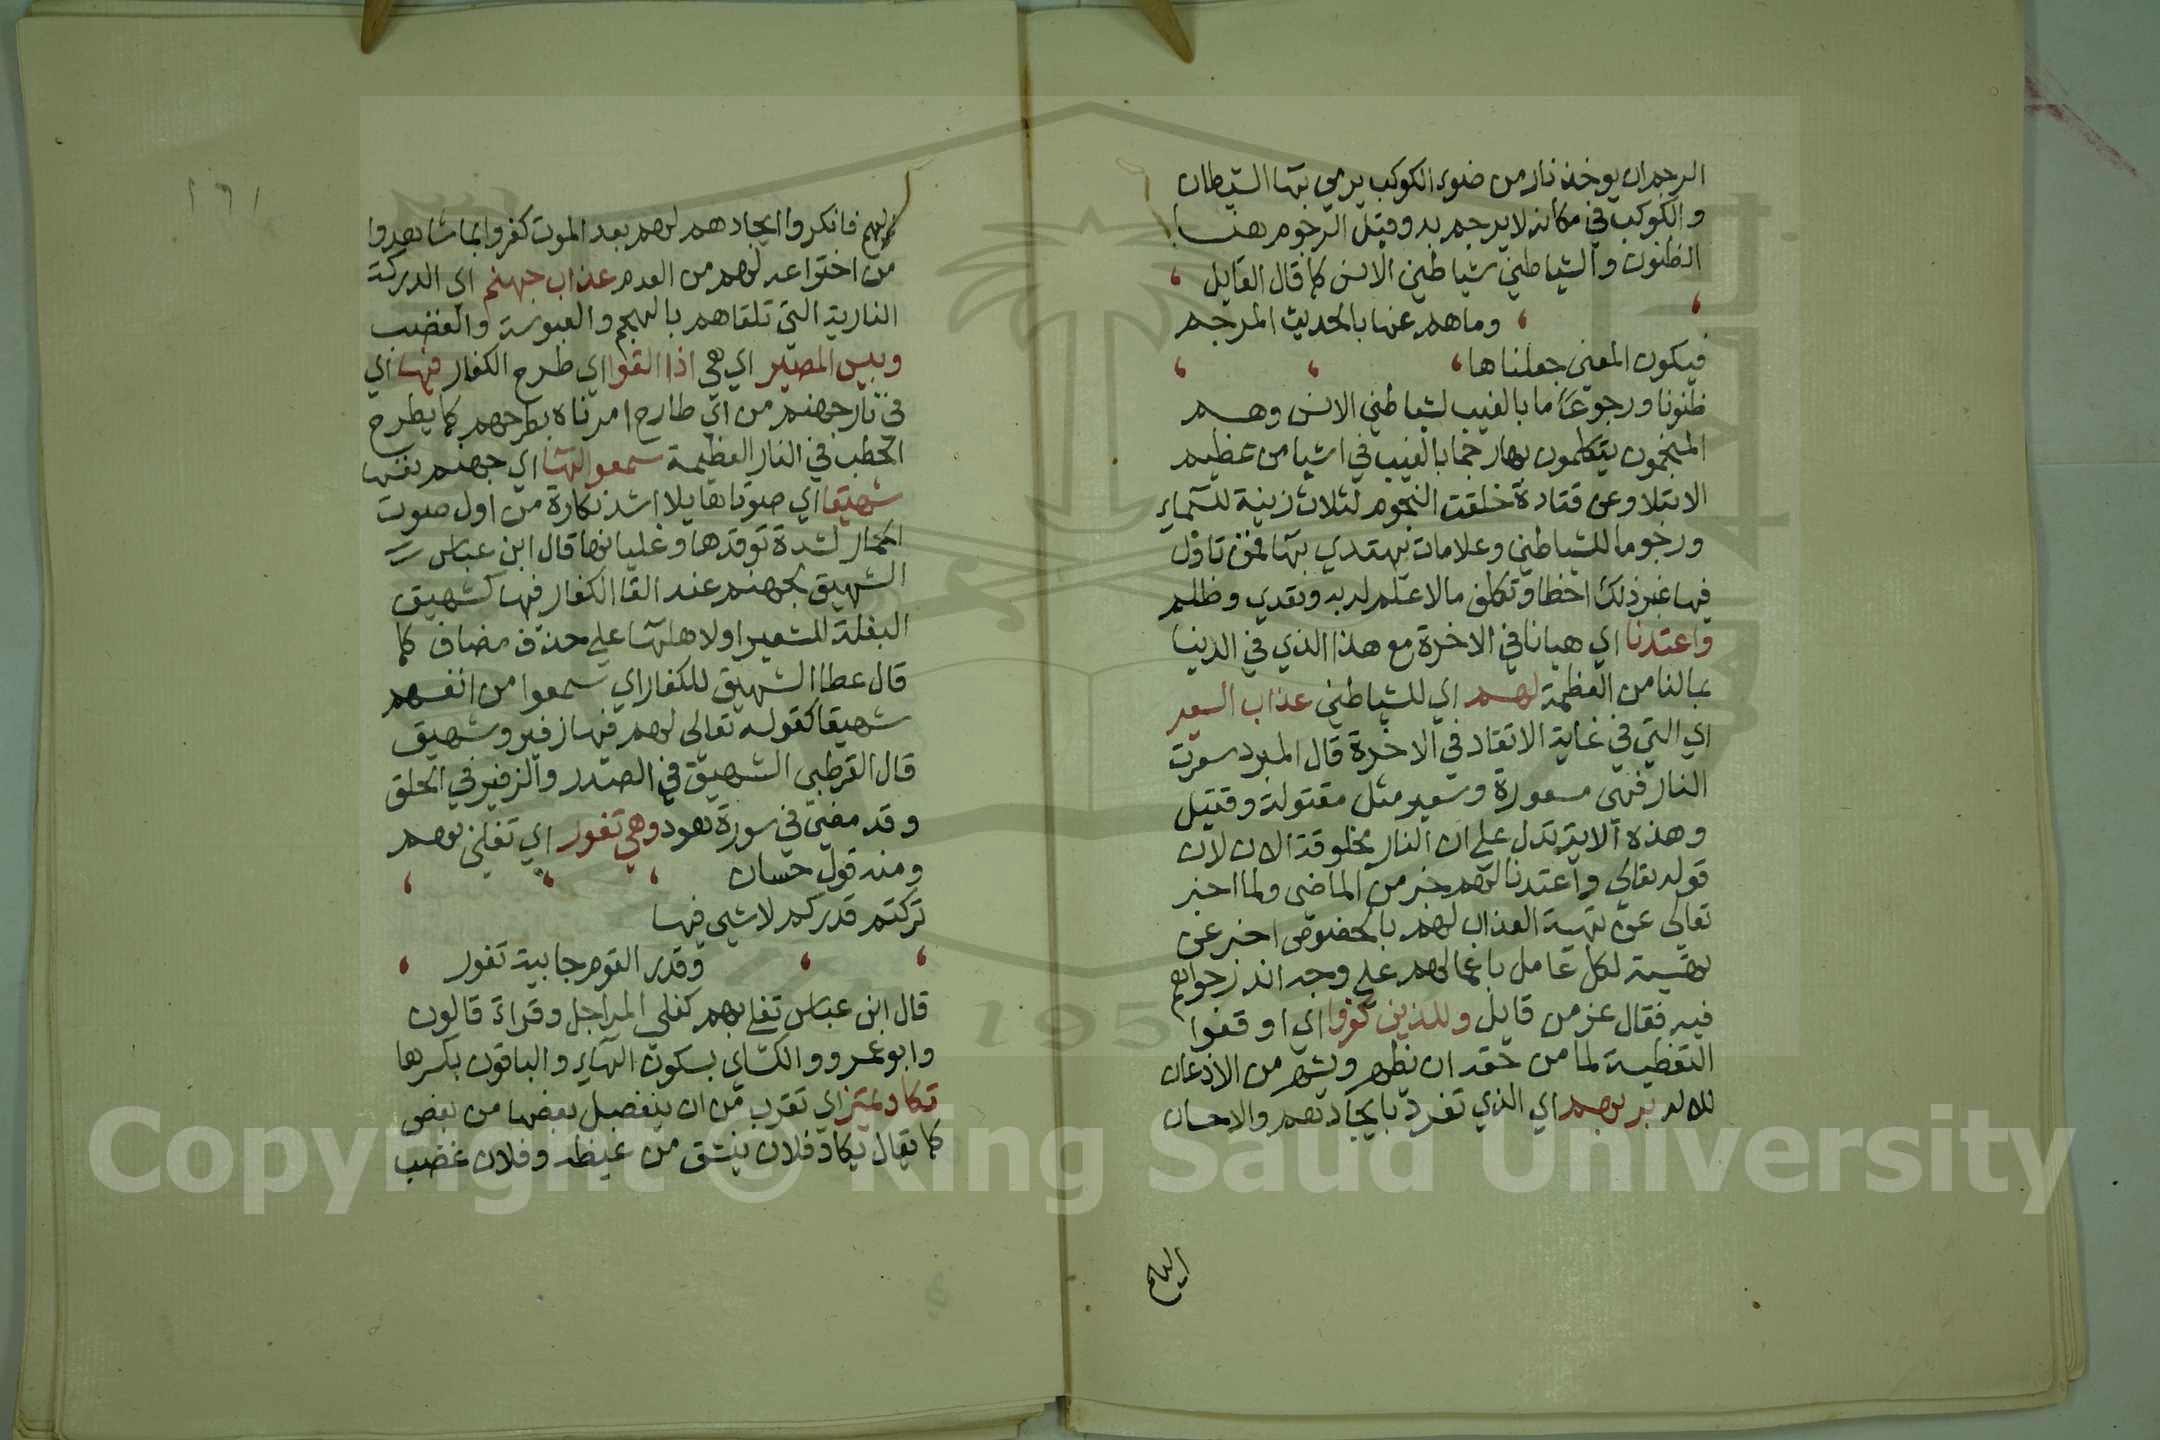 الرجم ان يوخذ نار من ضوء الكوكب يرمي بها الشيطان
والكوكب في مكانه لا يرجم به وقيل الرجوم هنا
الظنون والشياطين شياطين الانس كما قال القايل
وما هم عنها بالحديث المرجم
فيكون المعنى جعلناها
ظنونا ورجوعا ما بالغيب لشياطين الانس وهم
المنجمون يتكلمون بها رجما بالغيب في اشيا من عظيم
الابتلا وعن قتادة خلقت النجوم لثلاث زينة للسماء
ورجوما للشياطين وعلامات يهتدي بها فمن تاول
فيها غير ذلك اخطا وتكلف ما لا علم له به وتعدي وظلم
واعتدنا اي هيانا في الاخرة مع هذا الذي في الدنيا
بمالنا من العظمة لهم اي للشياطين عذاب السعير
اي التي في غاية الاتقاد في الاخرة قال المبرد سعرت
النار فهي مسعورة وسعير مثل مقتولة وقتيل
وهذه الاية تدل علي ان النار مخلوقة الان لان
قوله تعالي واعتدنا لهم خبر من الماضي ولما اخبر
تعالى عن تهية العذاب لهم بالخصوص اخبر عن
تهيية لكل عامل باعمالهم علي وجه اندرجوا هم
فيه فقال عز من قايل وللذين كفروا اي اوقعوا
التغطية لما من حقه ان يظهر ويشهر من الاذعان
للاله بربهم اي الذي تفرد بايجادهم والاحسان
اليهم
اليهم فانكروا ايجادهم لهم بعد الموت كفروا بما شاهدوا
من اختراعه لهم من العدم عذاب جهنم اي الدركة
النارية التي تلقاهم بالتهجم والعبوسة والغضب
وبيس المصير اي هي اذا القوا اي طرح الكفار فيها اي
في نار جهنم من اي طارح امرناه بطرحهم كما يطرح
الحطب في النار العظيمة سمعوا لها اي جهنم نفسها
شهيقا اي صوتا هايلا اشد نكارة من اول صوت
الحمار لشدة توقدها وغليانها قال ابن عباس
الشهيق لجهنم عند القا الكفار فيها كشهيق
البغلة للشعير او لاهلها علي حذف مضاف كما
قال عطا الشهيق للكفار اي سمعوا من انفسهم
شهيقا كقوله تعالى لهم فيها زفير وشهيق
قال القرطبي الشهيق في الصدر والزفير في الحلق
وقد مضي في سورة هود وهي تفور اي تغلي بهم
ومنه قول حسان
تركتم قدركم لا شي فيها
وقدر القوم حامية تفور
قال ابن عباس تغلي بهم كغلي المراجل وقراة قالون
وابو عمرو والكساي بسكون الهاء والباقون بكسرها
تكاد تميز اي تقرب من ان ينفصل بعضها من بعض
كما يقال يكاد فلان ينشق من غيظه وفلان غضب
١٦١
Copyright © King Saud University
1957